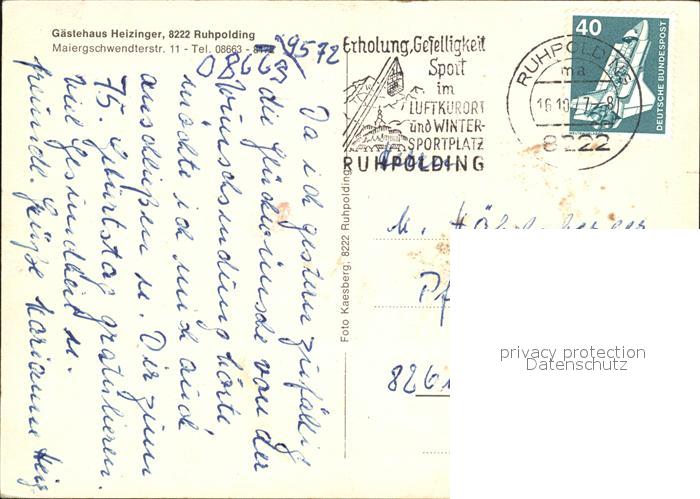 Gästehaus Heizinger, 8222 Ruhpolding
Maiergschwendterstr. 11 - Tel. 08663 -
9572
08663
Da ich gestern zufällig
die Glückwünsche von der
Wunschsendung hörte
möchte ich mich auch
anschließen u. Dir zum
75. Geburtstag gratulieren.
Viel Gesundheit u.
freundl. Grüße Marianne Heiz
Erholung, Geselligkeit
Sport
im
LUFTKURORT
und WINTER-
SPORTPLATZ
RUHPOLDING
RUHPOLDING
ma
16.10.77.-8
8222
40
DEUTSCHE BUNDESPOST
Foto Kaesberg, 8222 Ruhpolding
Pf
8261
privacy protection
Datenschutz